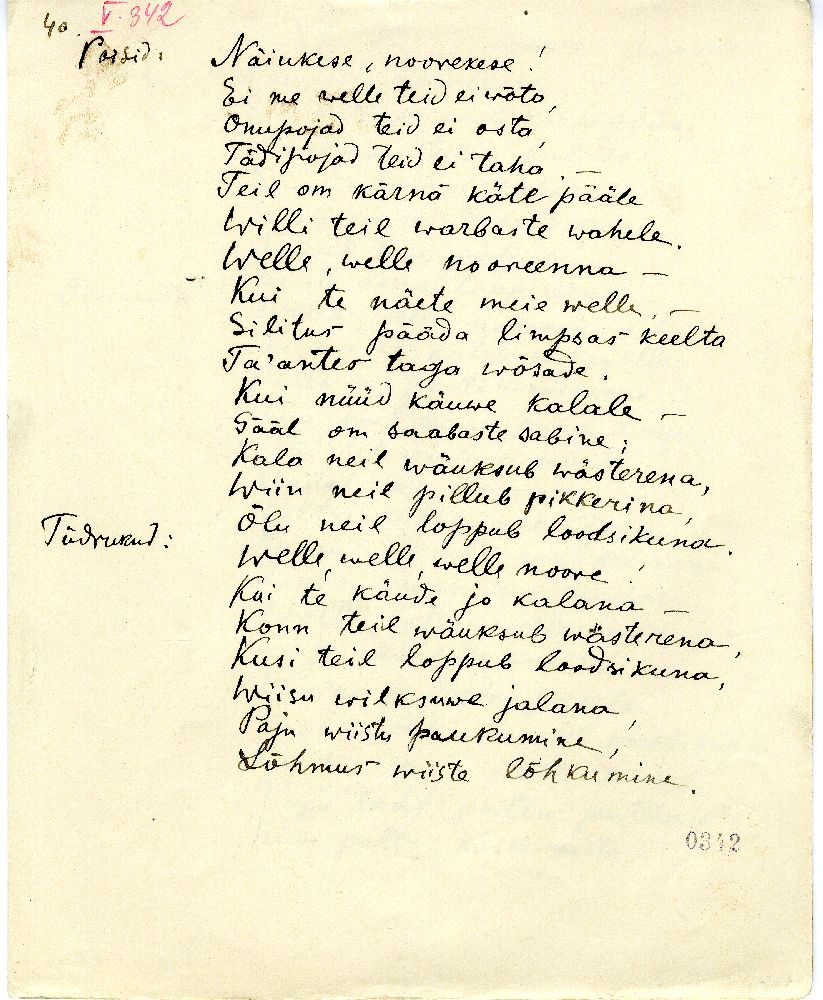 40. V. 342
Poisid: Näiukese, noorekese!
Ei me welle teid ei wōta,
Onupojad teid ei osta,
Tädipojad teid ei taha. —
Teil om kärnä käte pääle
Willi teil warbaste wahele.
Welle, welle nooreenna —
Kui te näete meie welle, —
Silitus pääda limpsas keelta
Ta'antes taga wōsade.
Kui nüüd käuwe kalale —
Sääl om saabaste sabine;
Kala neil wäuksub wästerena,
Wiin neil pillub pikkerina,
Õlu neil loppub loodsikuna.
Tüdrukud: Welle, welle, welle noore!
Kui te käude jo kalana —
Konn teil wäuksub wästerena,
Kusi teil loppub loodsikuna,
Wiisu wilksuwe jalana,
Paju wiistu paukumine,
Lōhmus wiiste lōhkumine.
0342